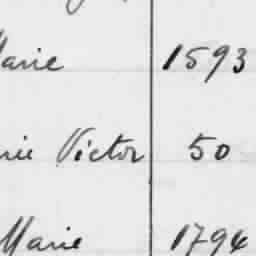 Marie 1593
rie Victor 50
Marie 1794